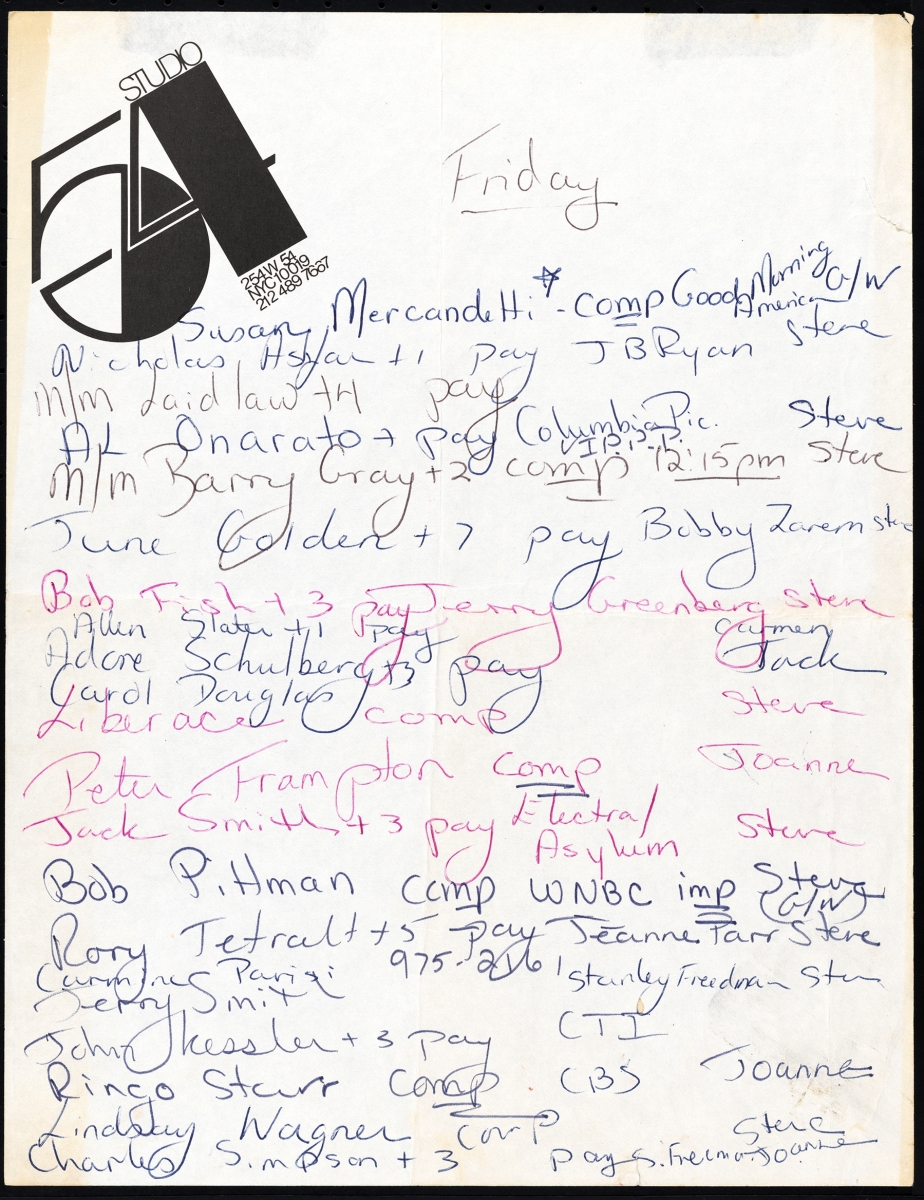 STUDIO
54
254 W 54
NYC 10019
212 489 7667
Friday
Susan Mercandetti * - comp Good Morning America G/W
Nicholas +1 pay JB Ryan Steve
M/m Laidlaw +4 pay
AL Onarato + pay Columbia Pic. Steve
M/m Barry Gray +2 comp V.I.P.P.P. 12:15pm Steve
June Golden +7 pay Bobby Zarem Steve
Bob Fish +3 pay Jerry Greenberg Steve
Allen Slater +1 pay Carmen
Adore Schulberg +3 pay Jack
Carol Douglas
Liberace comp Steve
Peter Frampton comp Joanne
Jack Smith +3 pay Electra/Asylum Steve
Bob Pittman comp WNBC imp Steve (G/W)
Rory Tetralt +5 pay Jeanne Parr Steve
Carmine Parisi 975-2161 Stanley Freedman Steve
Jerry Smith
John Kessler +3 pay CTI
Ringo Starr comp CBS Joanne
Lindsay Wagner comp Steve
Charles Simpson +3 pay S. Freeman Joanne